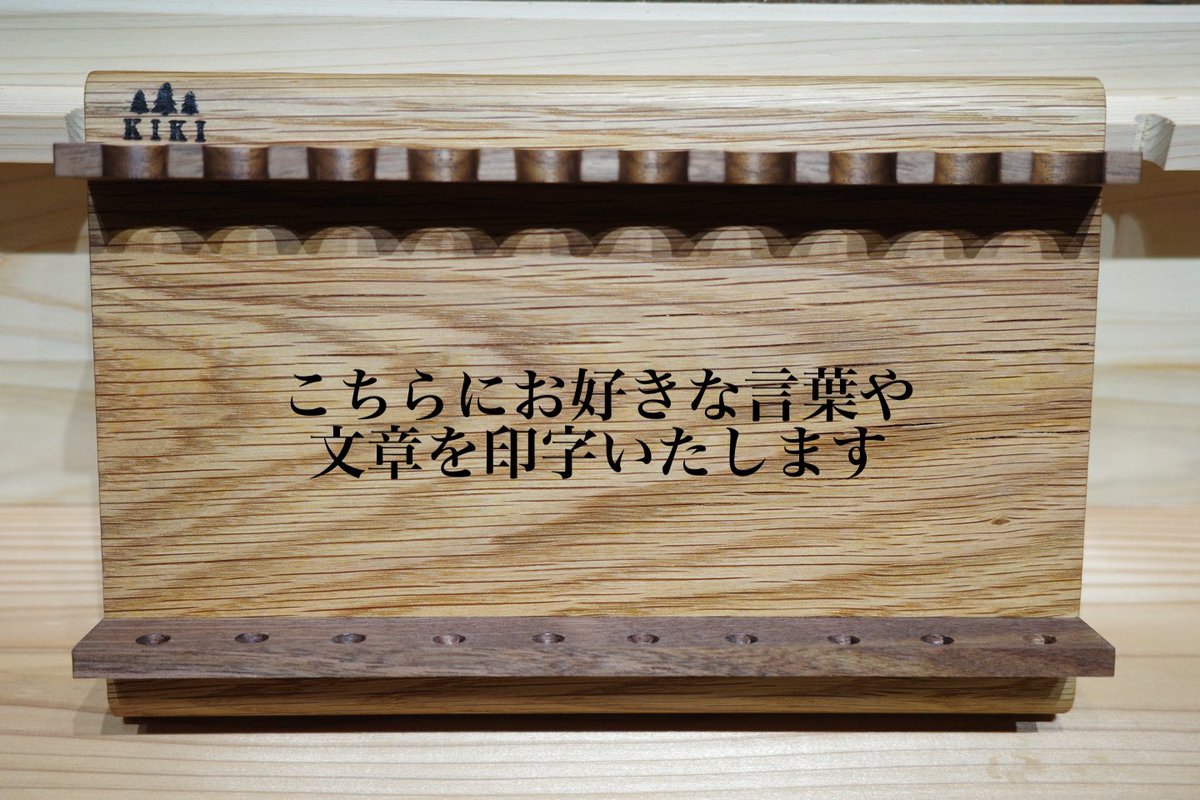 KIKI
こちらにお好きな言葉や
文章を印字いたします